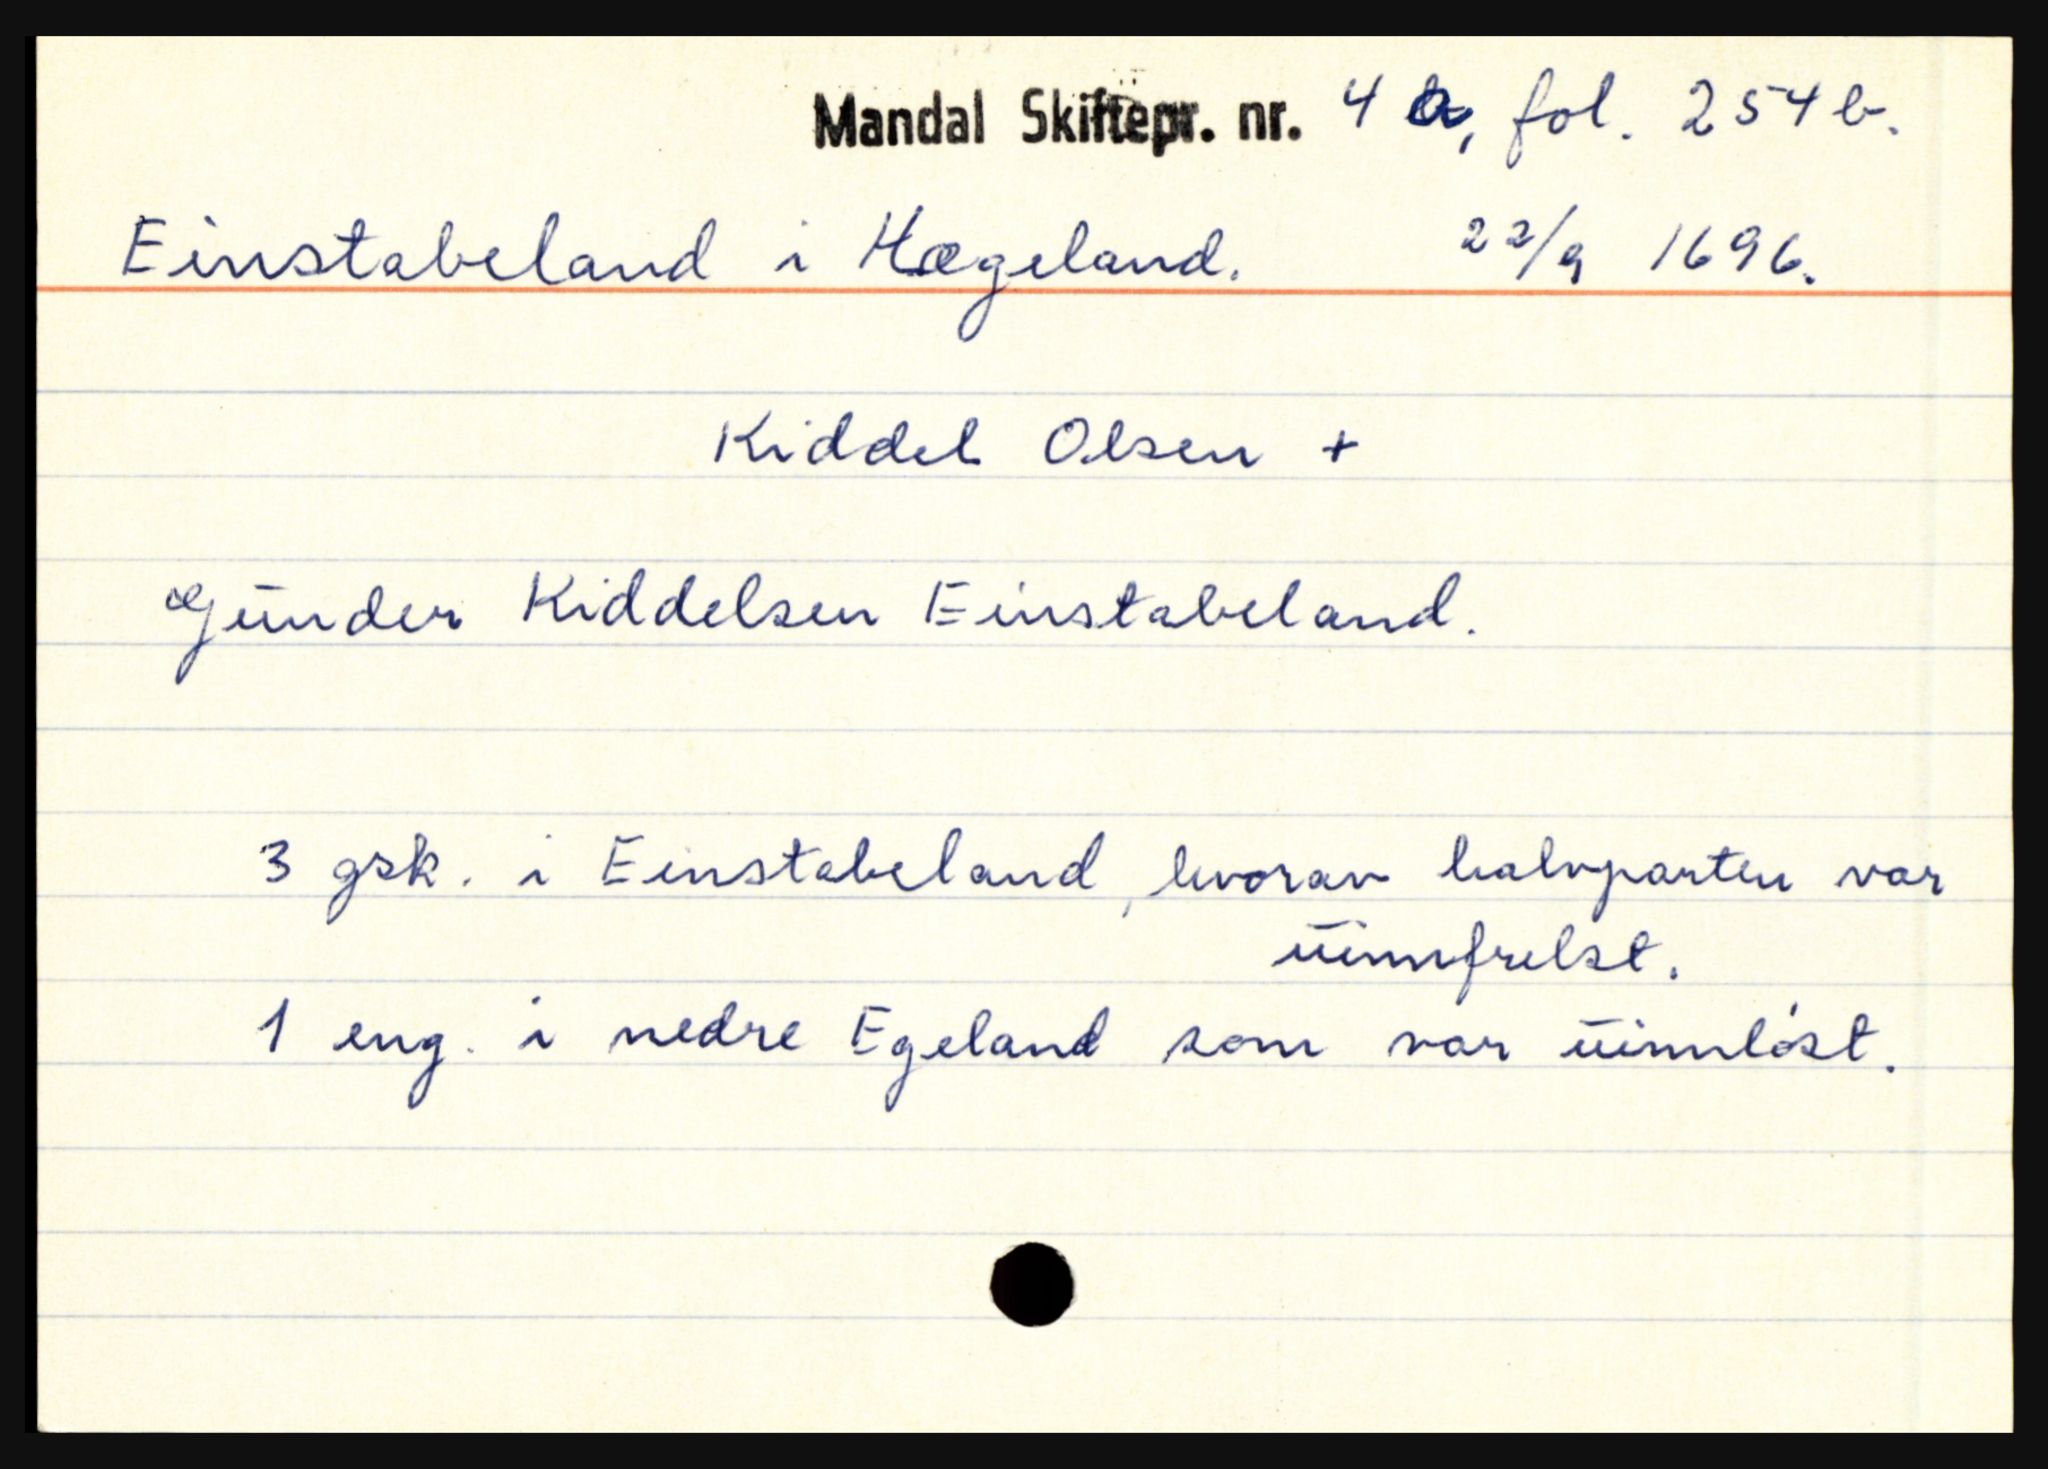 Mandal Skiftepr. nr. 4 a, fol. 254 b.
Einstabeland i Hægeland. 22/9 1696.
Kiddel Olsen +
Gunder Kiddelsen Einstabeland.
3 gsk. i Einstabeland, hvorav halvparten var
uinnfrelst.
1 eng. i nedre Egeland som var uinnløst.